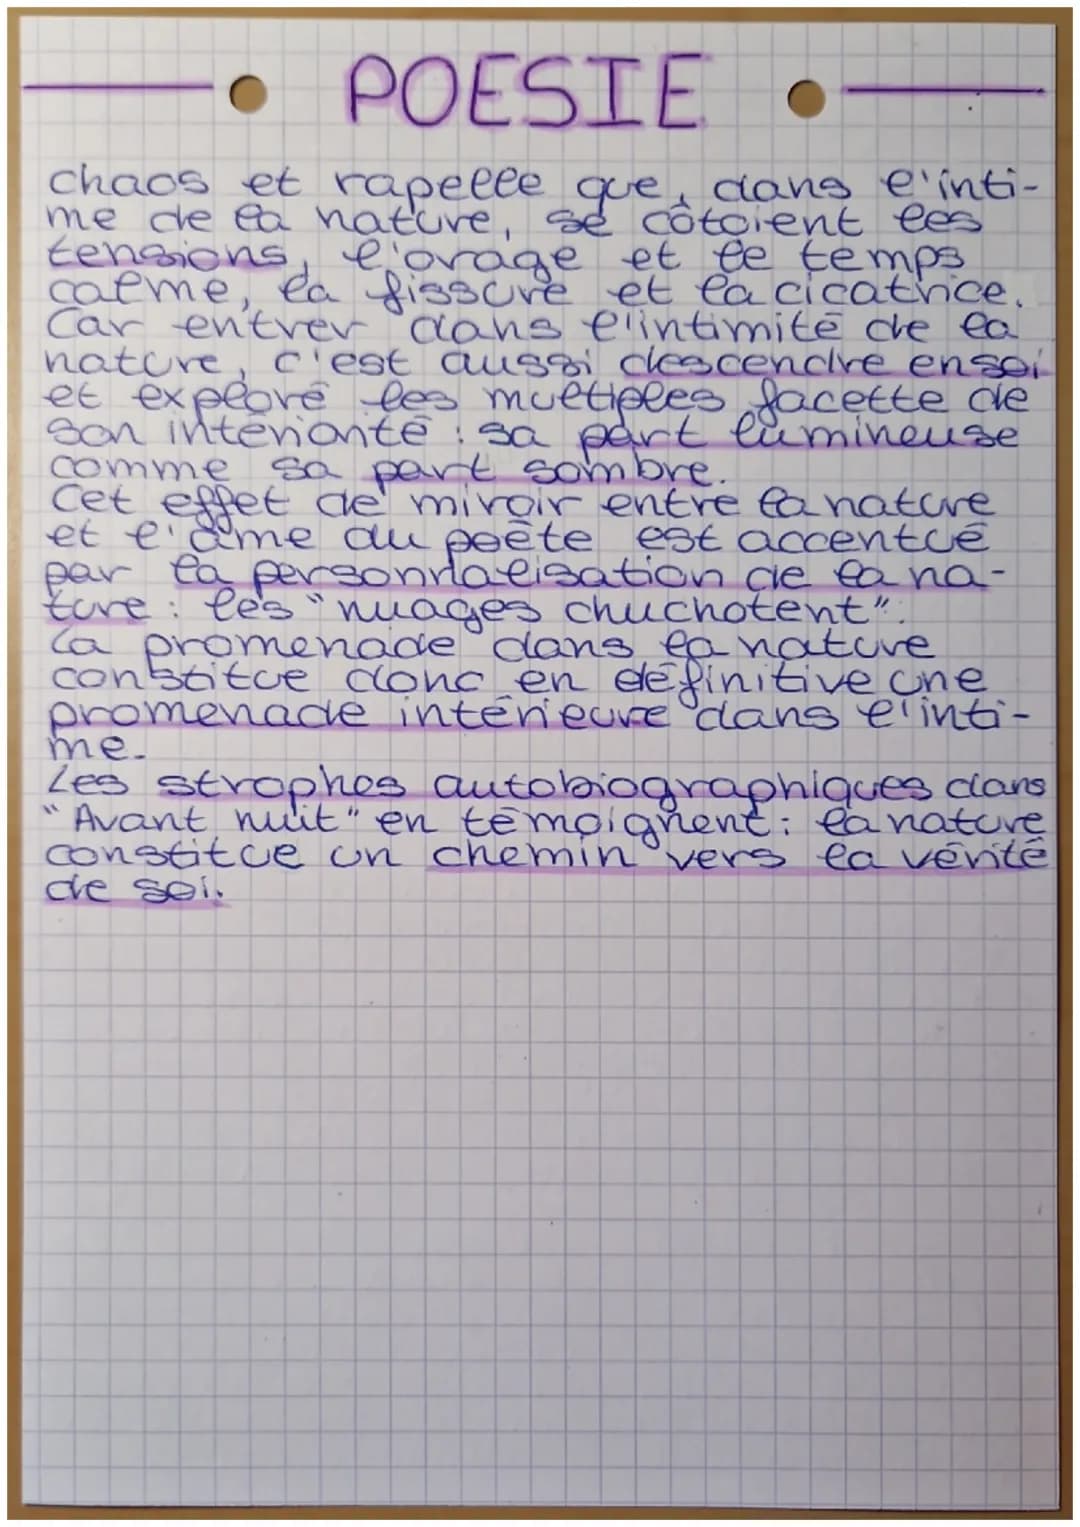 POESIE
chaos et rapelle que, dans l'inti-
me de la nature, se côtoient les
tensions, l'orage et le temps
calme, la fissure et la cicatrice.
Car entrer dans l'intimité de la
nature, c'est aussi descendre en soi
et exploré les multiples facette de
son intériorité : sa part lumineuse
comme sa part sombre.
Cet effet de miroir entre la nature
et l'âme du poète est accentué
par la personnalisation de la na-
ture : les "nuages chuchotent".
La promenade dans la nature
constitue donc en définitive une
promenade intérieure dans l'inti-
me.
Les strophes autobiographiques dans
"Avant nuit" en témoignent : la nature
constitue un chemin vers la vérité
de soi.